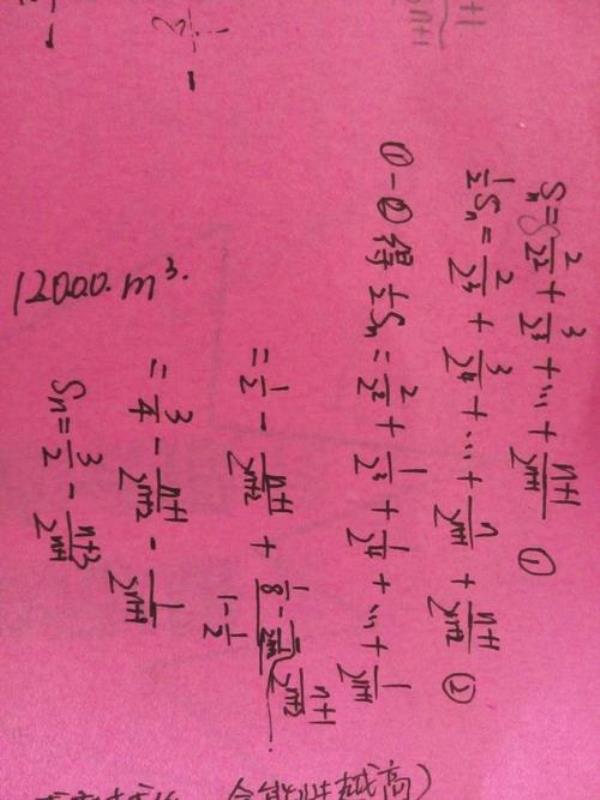 Sn = 2/2² + 3/2³ + … + (n+1)/2ⁿ⁺¹ ①
1/2 Sn = 2/2³ + 3/2⁴ + … + n/2ⁿ⁺¹ + (n+1)/2ⁿ⁺² ②
①-② 得 1/2 Sn = 2/2² + 1/2³ + 1/2⁴ + … + 1/2ⁿ⁺¹ - (n+1)/2ⁿ⁺²
= 1/2 - (n+1)/2ⁿ⁺² +
1-1/2
= 3/4 - (n+1)/2ⁿ⁺² - 1/2ⁿ⁺¹
Sn = 3/2 - (n+3)/2ⁿ⁺¹
12000.m³.
越高)